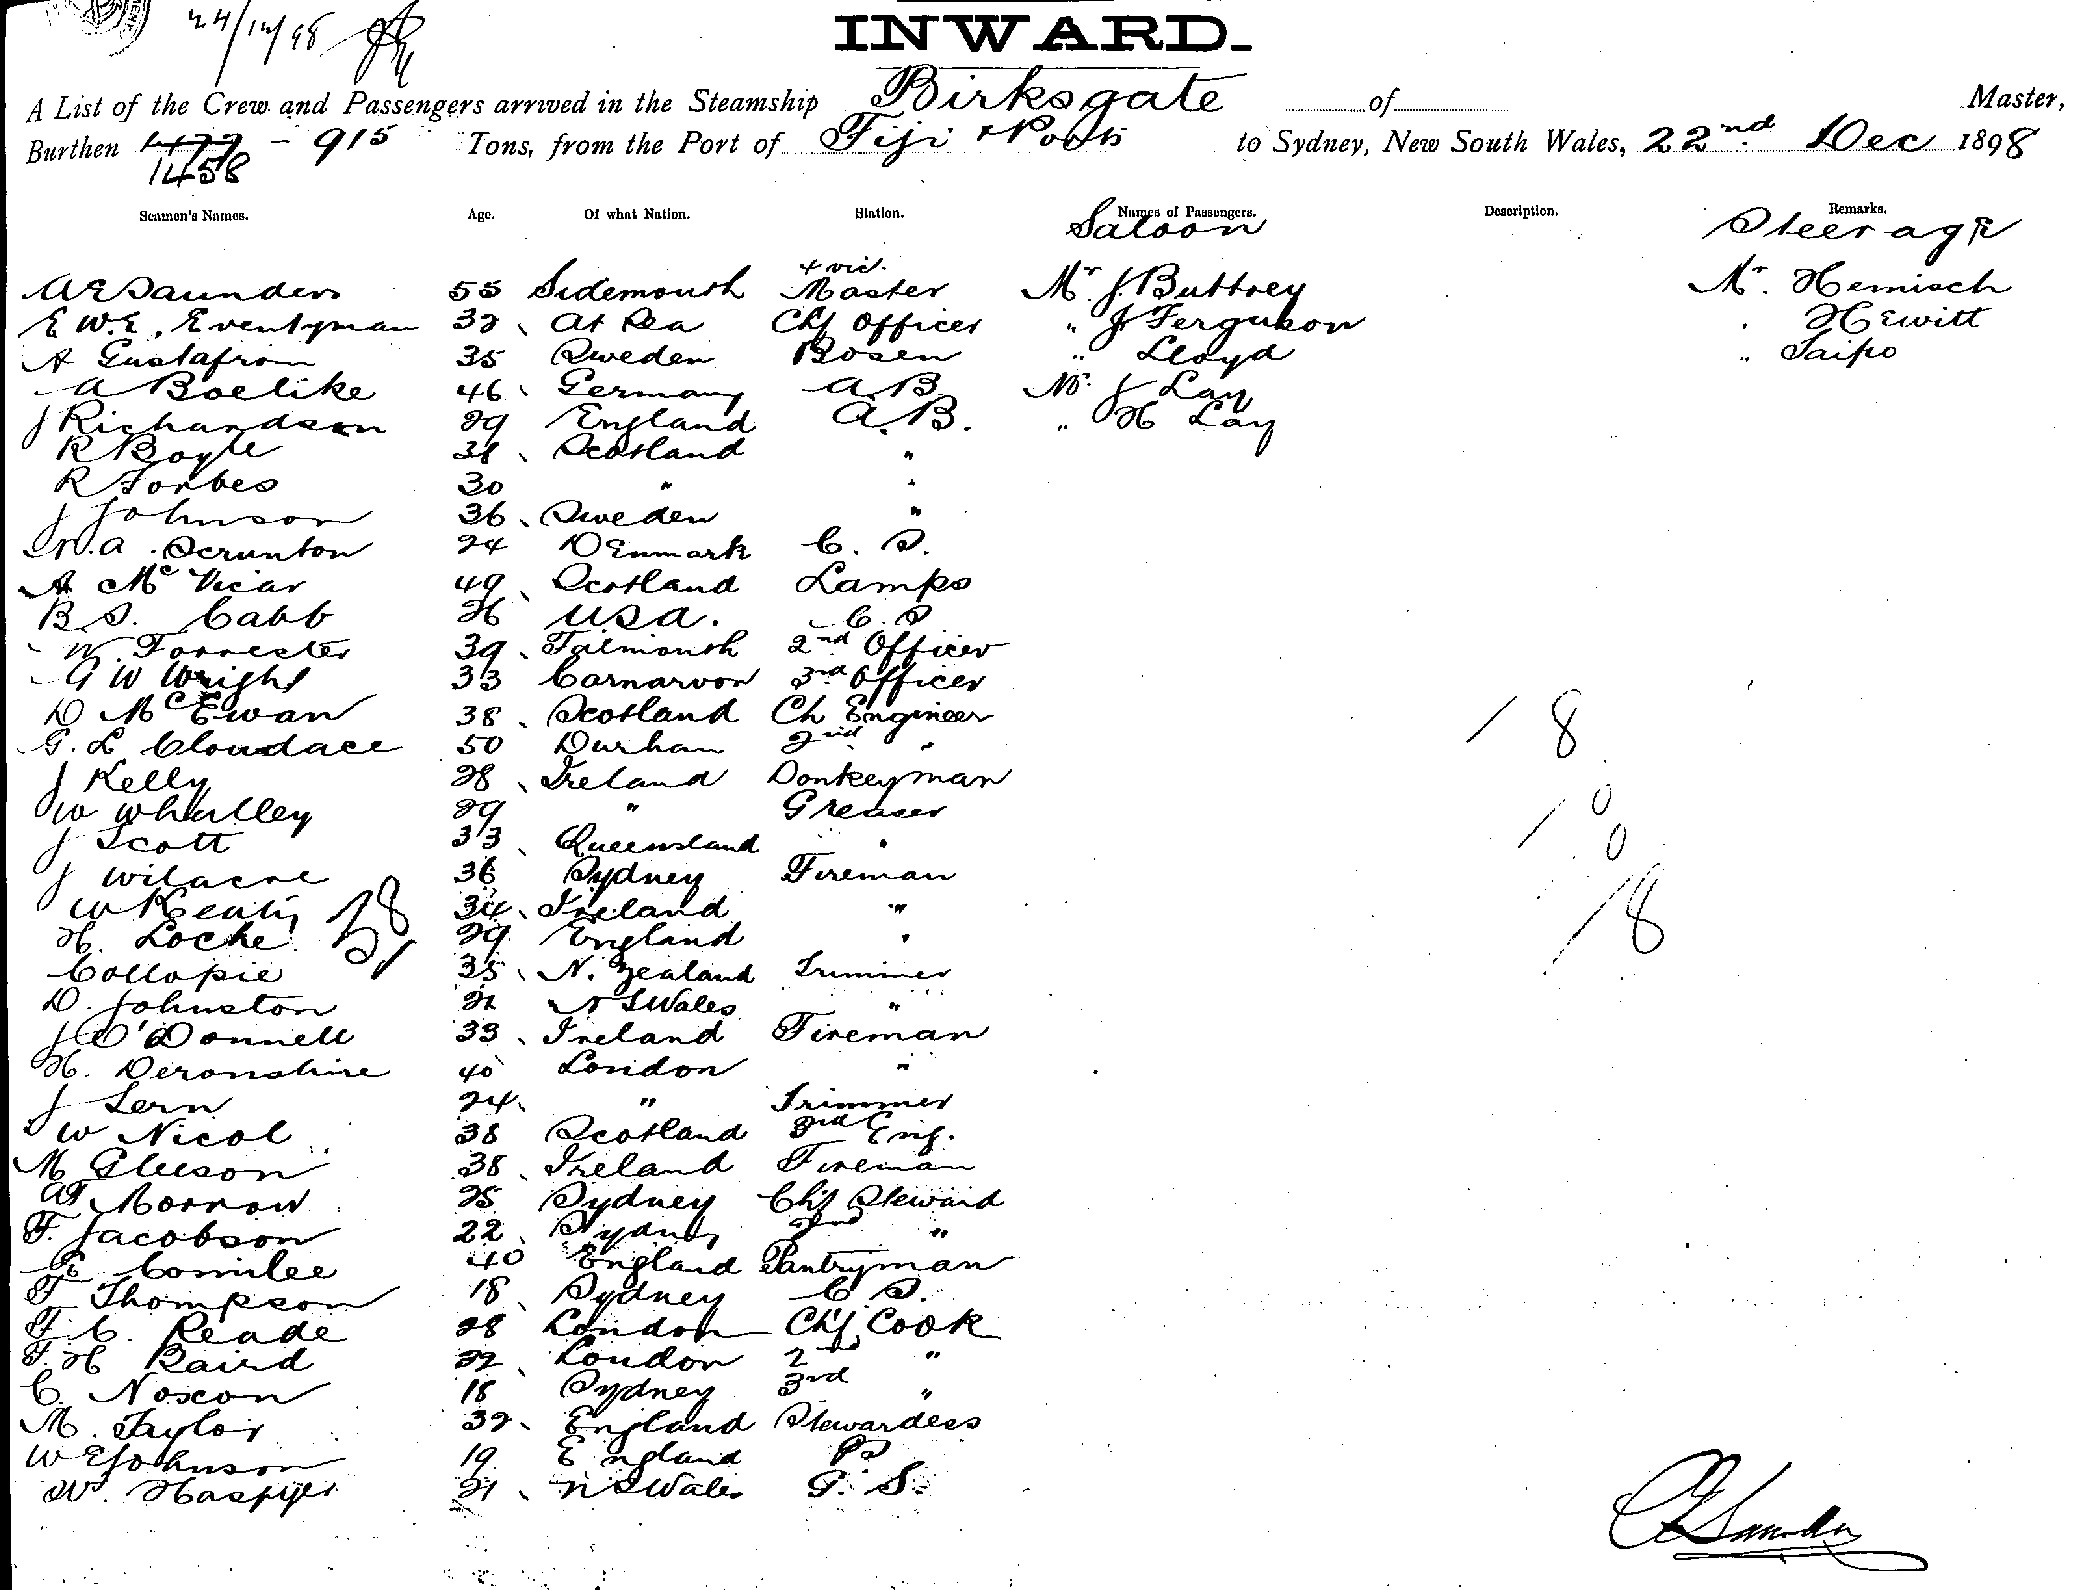 24/12/98
INWARD.
A List of the Crew and Passengers arrived in the Steamship Birksgate of Master,
Burthen 1477 - 915 Tons, from the Port of Fiji & Ports to Sydney, New South Wales, 22nd Dec 1898
1458
Seamen's Names. Age. Of what Nation. Station. Names of Passengers. Description. Remarks.
Saloon Steerage
A E Saunders 55 Sidemouth Master Mr. J. Buttrey Mr. Hemisch
E W. E. Eventyman 32 At Sea Chf Officer " J Ferguson . Hewitt
A Gustafson 35 Sweden Bosen " Lloyd " Taipo
A Boelike 46 Germany A B Mr. J Lay
J Richardson 29 England A. B. " H Lay
R Boyle 38 Scotland "
R Forbes 30 " "
J Johnson 36 Sweden "
A. Scrunton 24 Denmark C. S.
A McVicar 49 Scotland Lamps
B S. Cabb 26 USA. C. S
W. Forrester 39 Falmouth 2nd Officer
G W Wright 33 Carnarvon 3rd Officer
D McEwan 38 Scotland Ch Engineer
G. L Cloudace 50 Durham 2nd "
18
J Kelly 28 Ireland Donkeyman
W Whalley 29 " Greaser
0
J Scott 33 Queensland "
0
J Wilacre 36 Sydney Fireman
W Keatig 34 Ireland "
18
H. Locke 29 England "
Collopie 35 N. Zealand Trimmer
D. Johnston 21 N S Wales "
J O'Donnell 33 Ireland Fireman
H. Devonshire 40 London "
J Lern 24 " Trimmer
W Nicol 38 Scotland 3rd Eng.
M Gleeson 38 Ireland Fireman
Morrow 25 Sydney Chf Steward
F. Jacobson 22 Sydney 2nd "
Comilee 40 England Pantryman
F Thompson 18 Sydney C S.
F. C. Reade 28 London Chf Cook
F. H Baird 22 London 2nd "
C. Noxon 18 Sydney 3rd "
M. Taylor 32 England Stewardess
W E Johnson 19 England P S
W. 21 N S Wales F. S.